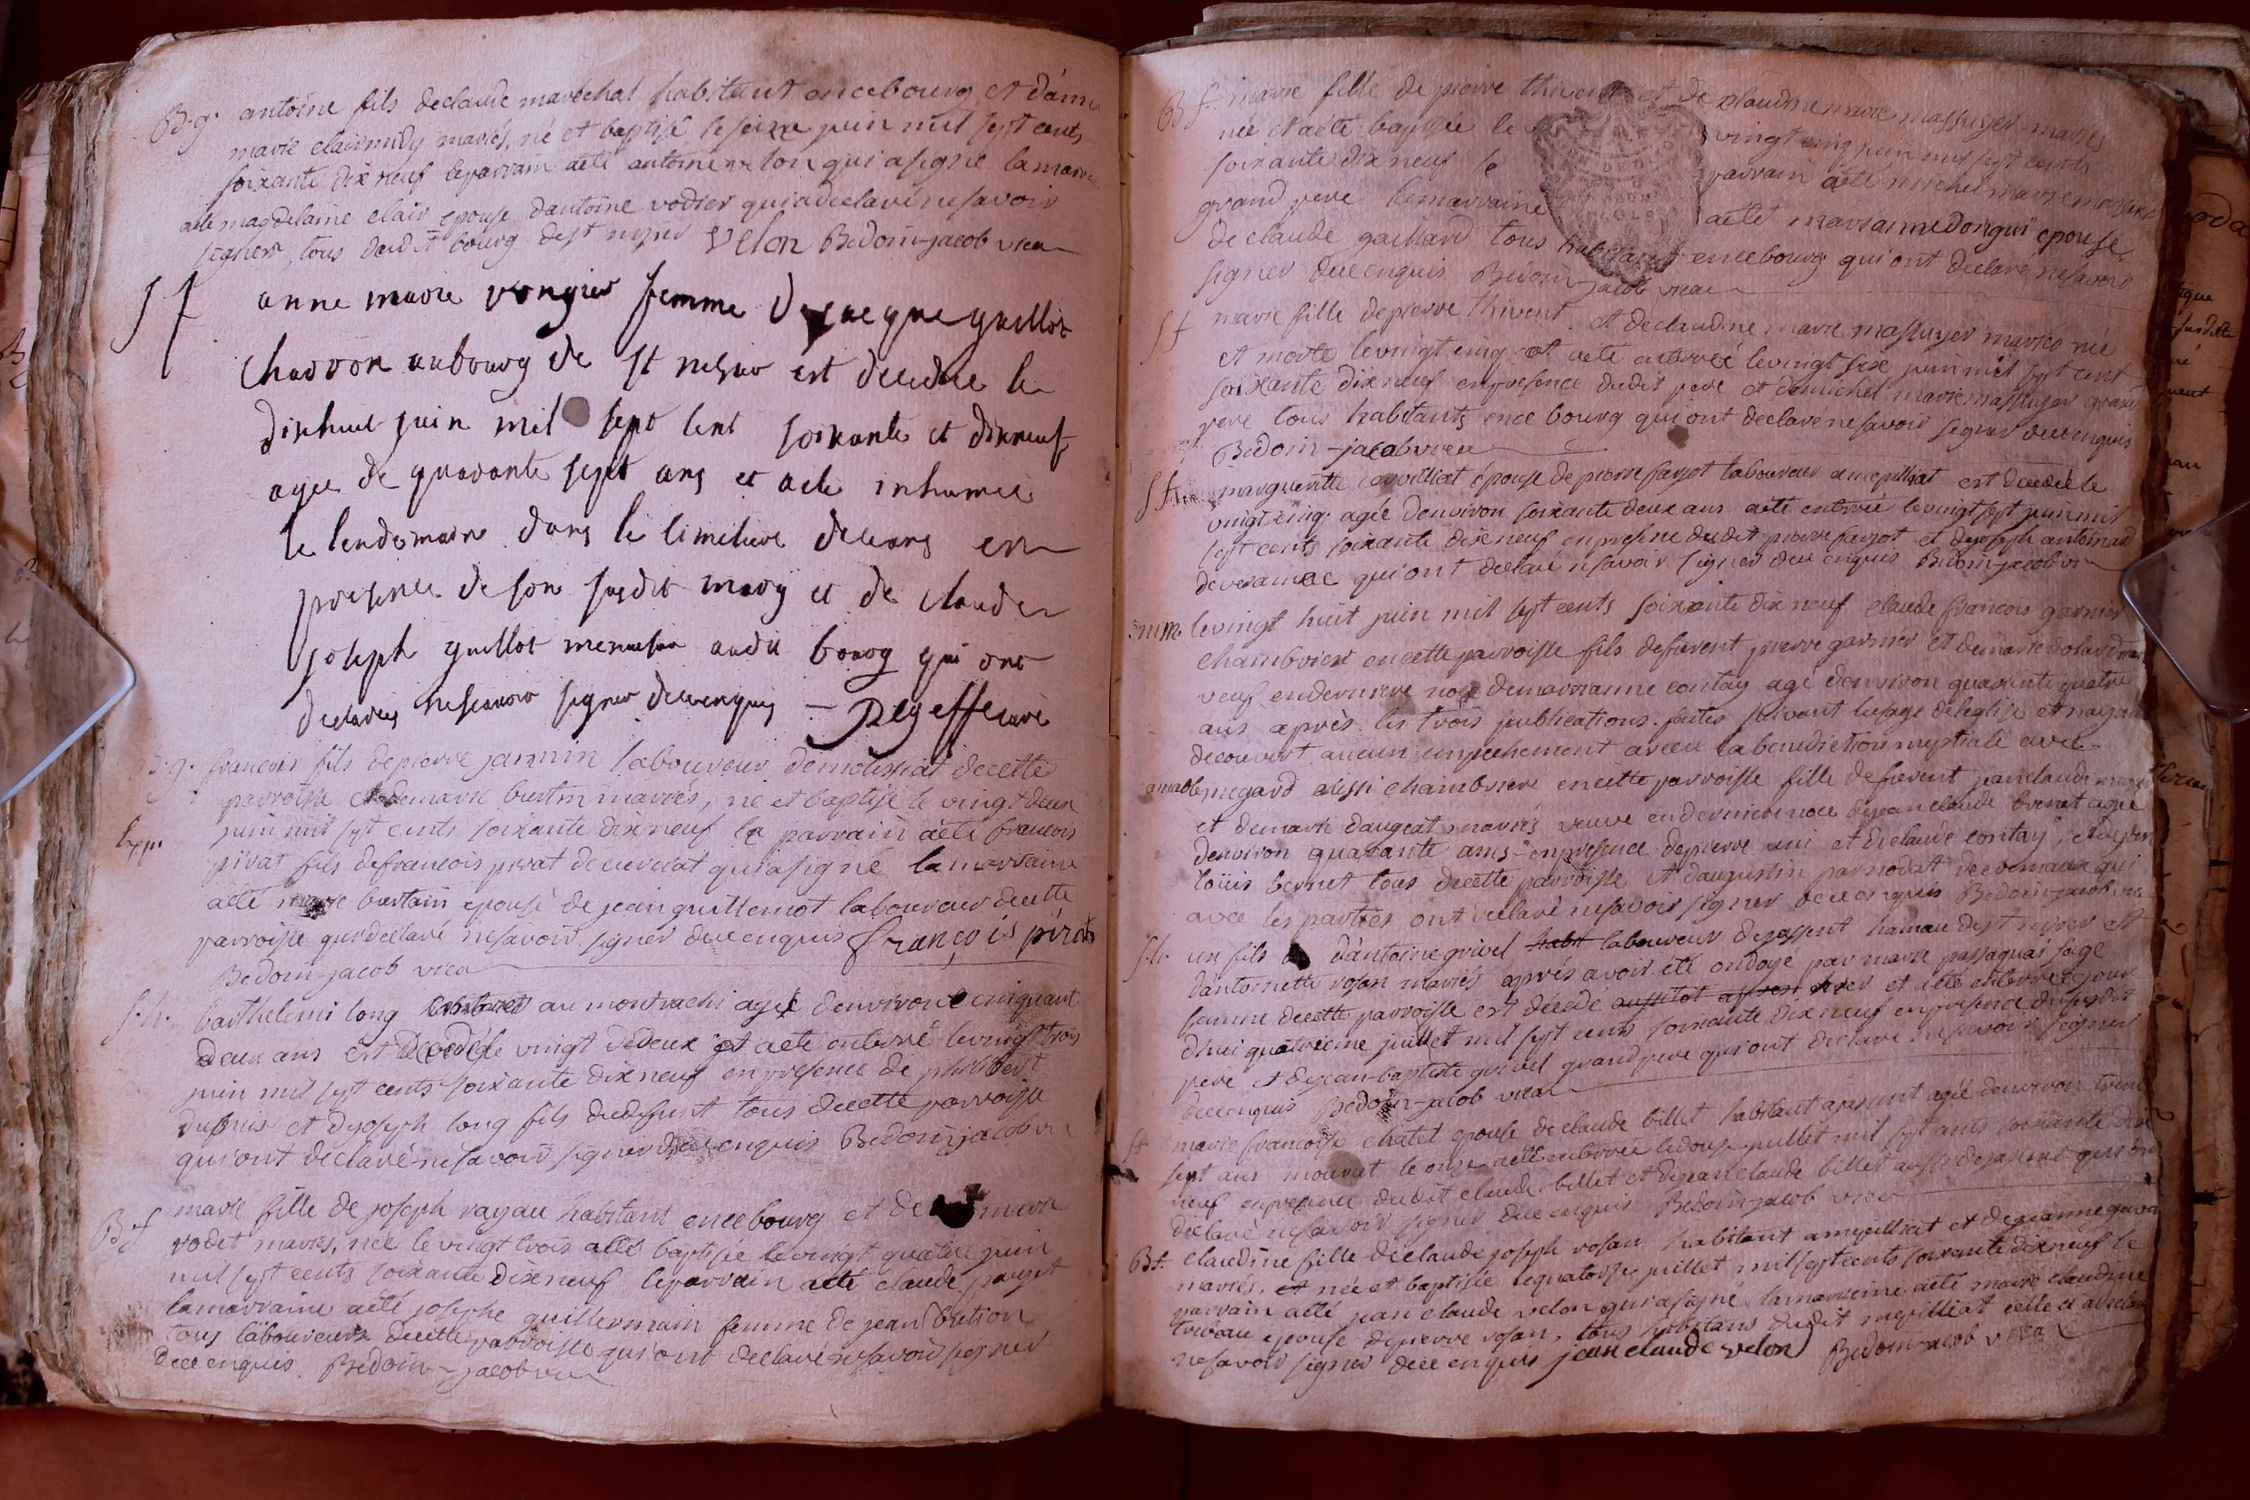 B. g. antoine fils de claude marechal habitant en ce bourg et d'anne
marie mariés, né et baptisé le seize juin mil sept cents
soixante dix neuf le parrain a été antoine velon qui a signé la marraine
a été magdelaine clair epouse d'antoine vodier qui a declaré ne savoir
signer, tous dudit bourg de st nizier velon Bedoin-jacob vica
S f
anne marie vongier femme de jacque guillot
charron au bourg de st nizier est decedée le
dixhuit juin mil sept cent soixante et dixneuf
agee de quarante sept ans et a ete inhumée
le lendemain dans le cimetiere deceans en
presence de son susdit mary et de claude
joseph guillot menuisier audit bourg qui ont
declarés ne scavoir signer de ce enquis
g. francois fils de pierre jannin laboureur de cette
parroisse et de marie burtin mariés, né et baptisé le vingt deux
juin mil sept cents soixante dix neuf le parrain a été francois
pirat fils de francois pirat de cuverat qui a signé la marraine
a été marie burtain epouse de jean guillemot laboureur de cette
parroisse qui a declaré ne savoir signer de ce enquis françois pirat
Bedoin-jacob vica
S. h. barthelemi long au montrachi agé d'environ cinquante
deux ans est decedé le vingt deux et a été enterré le vingt trois
juin mil sept cents soixante dix neuf en presence de philibert
dupuis et de joseph long fils dudefunt tous de cette parroisse
qui ont déclaré ne savoir signer de ce enquis Bedoin-jacob vi
B f marie fille de joseph rayau habitant en ce bourg et de marie
rodet mariés, née le vingt trois a été baptisée le vingt quatre juin
mil sept cents soixante dix neuf le parrain a été claude
la marraine a été josephe guillermain femme de jean
tous laboureurs de cette parroisse qui ont declaré ne savoir signer
de ce enquis. Bedoin-jacob vica
B f marie fille de pierre thivent et de claudine marie massuyer mariés
née et a été baptisée le vingt cinq juin mil sept cents
soixante dix neuf le parrain a été michel marie massuyer
grand pere la marraine a été marianne donguy epouse
de claude gaillard tous habitants en ce bourg qui ont declaré ne savoir
signer de ce enquis Bedoin jacob vica
S f marie fille de pierre thivent et de claudine marie massuyer mariés née
et morte le vingt cinq et a été enterrée le vingt six juin mil sept cent
soixante dix neuf en presence dudit pere et de michel marie massuyer grand
pere tous habitants en ce bourg qui ont declaré ne savoir signer de ce enquis
Bedoin-jacob vica
S f marguerite epouse de pierre laboureur a mepilliat est decedée le
vingt cinq agée d'environ soixante deux ans a été enterrée le vingt sept juin mil
sept cents soixante dix neuf en presence dudit pierre et de joseph
qui ont declaré ne savoir signer de ce enquis Bedoin-jacob vi
le vingt huit juin mil sept cents soixante dix neuf claude francois garnier
chambrier en cette parroisse fils de furent pierre garnier et de marie
veuf en derniere noce de marianne contay agé d'environ quarante quatre
ans après les trois publications faites suivant l'usage de l'eglise et n'ayant
decouvert aucun empechement a receu la benediction nuptiale avec
megard aussi chambriere en cette parroisse fille de furent jean claude
et de marie daugeat mariés veuve en derniere noce de jean claude brenet agée
d'environ quarante ans en presence de pierre et de claude contay, et de
loüis bernet tous de cette parroisse et d'augustin qui
avec les parties ont declaré ne savoir signer de ce enquis Bedoin-jacob vica
S. h. un fils d'antoine grivel habit laboureur de hameau de st nizier et
d'antoinette rosan mariés après avoir été ondoyé par marie sage
femme de cette parroisse est décédé et a été enterré ce jour
d'hui quatrieme juillet mil sept cents soixante dix neuf en presence du susdit
pere et de jean-baptiste grivel grand pere qui ont declaré ne savoir signer
de ce enquis Bedoin-jacob vica
Sf marie francoise chatel epouse de claude billet habitant agée d'environ trente
sept ans mourut le onze a été enterrée le douze juillet mil sept cents soixante dix
neuf en presence dudit claude billet et de jean claude billet aussi qui ont
declaré ne savoir signer de ce enquis Bedoin-jacob vica
B f claudine fille de claude joseph rosan habitant a mepilliat et de jeanne
mariés, née et baptisée le quatorze juillet mil sept cents soixante dix neuf le
parrain a été jean claude velon qui a signé la marraine a été marie claudine
epouse de pierre rosan, tous habitans dudit mepilliat
ne savoir signer de ce enquis jean claude velon Bedoin-jacob vica